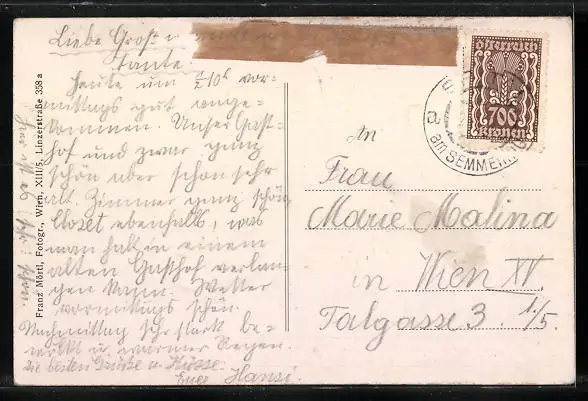 Liebe Groß
tante.
Heute um ½10h vor-
mittags gut ange-
kommen. Unser Gast-
hof und zwar ganz
schön aber schon sehr
alt. Zimmer ganz schön,
Closet ebenfalls, was
man halt in einem
alten Gasthof verlan-
gen kann. Wetter
vormittags schön.
Nachmittag sehr stark be-
wölkt u. warmer Regen.
Die besten Grüße u. Küsse.
Euer Hansi.
Franz Mörtl, Fotogr., Wien, XIII/5, Linzerstraße 358 a
Österreich
700
Kronen
am SEMMERING
An
Frau
Marie Malina
in Wien XV.
Talgasse 3. 1/5.